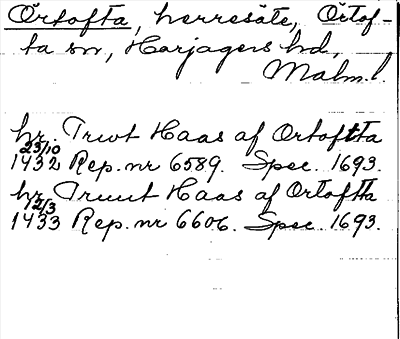 Örtofta, herresäte, Örtof-
ta sn, Harjagers hd,
Malm. l.
hr. Truvt Haas af Ortoftta
23/10
1432 Rep. nr 6589. Spec. 1693.
hr Truut Haas af Örtoftta
12/3
1433 Rep. nr 6606. Spec. 1693.